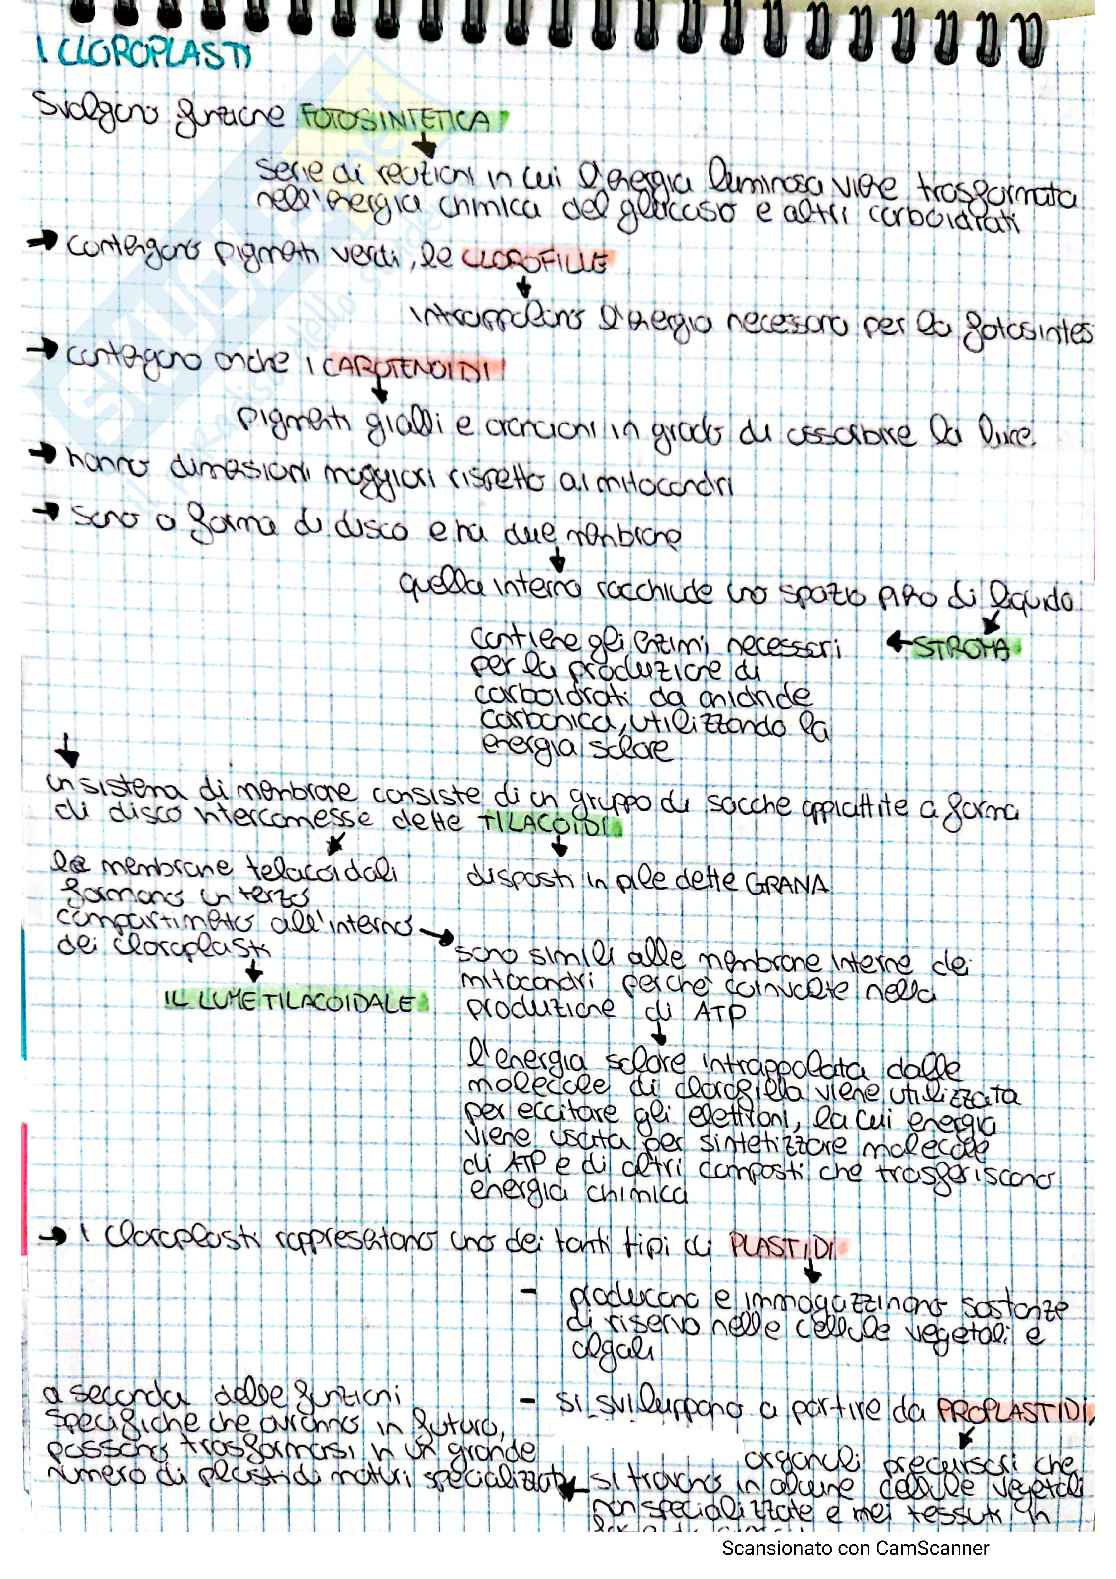 I CLOROPLASTI
Svolgono funzione FOTOSINTETICA
serie di reazioni in cui l'energia luminosa viene trasformata
nell'energia chimica del glucosio e altri carboidrati
→ contengono pigmenti verdi, le CLOROFILLE
intrappolano l'energia necessaria per la fotosintes
→ contengono anche I CAROTENOIDI
pigmenti gialli e arancioni in grado di assorbire la luce.
→ hanno dimensioni maggiori rispetto ai mitocondri
→ sono a forma di disco e ha due membrane
quella interna racchiude uno spazio pieno di liquido
contiene gli enzimi necessari ← STROMA
per la produzione di
carboidrati da anidride
carbonica, utilizzando la
energia solare
un sistema di membrane consiste di un gruppo di sacche appiattite a forma
di disco interconnesse dette TILACOIDI
le membrane telacoidali
formano un terzo
compartimento all'interno
dei cloroplasti
IL LUME TILACOIDALE
disposti in pile dette GRANA
sono simili alle membrane interne dei
mitocondri perchè coinvolte nella
produzione di ATP
l'energia solare intrappolata dalle
molecole di clorofilla viene utilizzata
per eccitare gli elettroni, la cui energia
viene usata per sintetizzare molecole
di ATP e di altri composti che trasferiscono
energia chimica
→ I cloroplasti rappresentano uno dei tanti tipi di PLASTIDI
- producono e immagazzinano sostanze
di riserva nelle cellule vegetali e
algali
- si sviluppano a partire da PROPLASTIDI,
organuli precursori che
si trovano in alcune cellule vegetali
non specializzate e nei tessuti in
a seconda delle funzioni
specifiche che avranno in futuro,
possono trasformarsi in un grande
numero di plastidi maturi specializzati
Scansionato con CamScanner